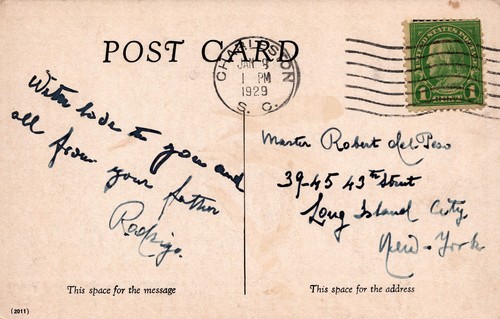 POST CARD
CHARLESTON
JAN 9
1 PM
1929
S. C.
UNITED STATES POSTAGE
1 1
With love to you and
all from your father
Rodrigo.
Master Robert del Peso
39-45 43th Street
Long Island City
New-York
This space for the message
This space for the address
(2011)